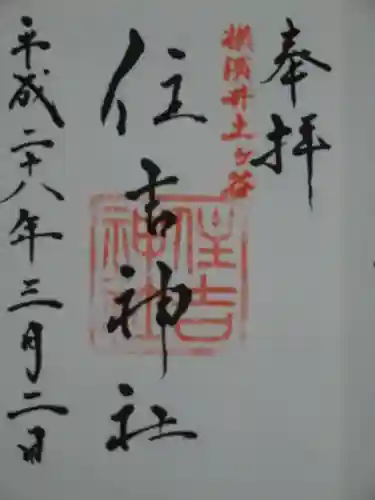 奉拝
横浜井土ヶ谷
住吉神社
住吉
神社
平成二十八年三月二日